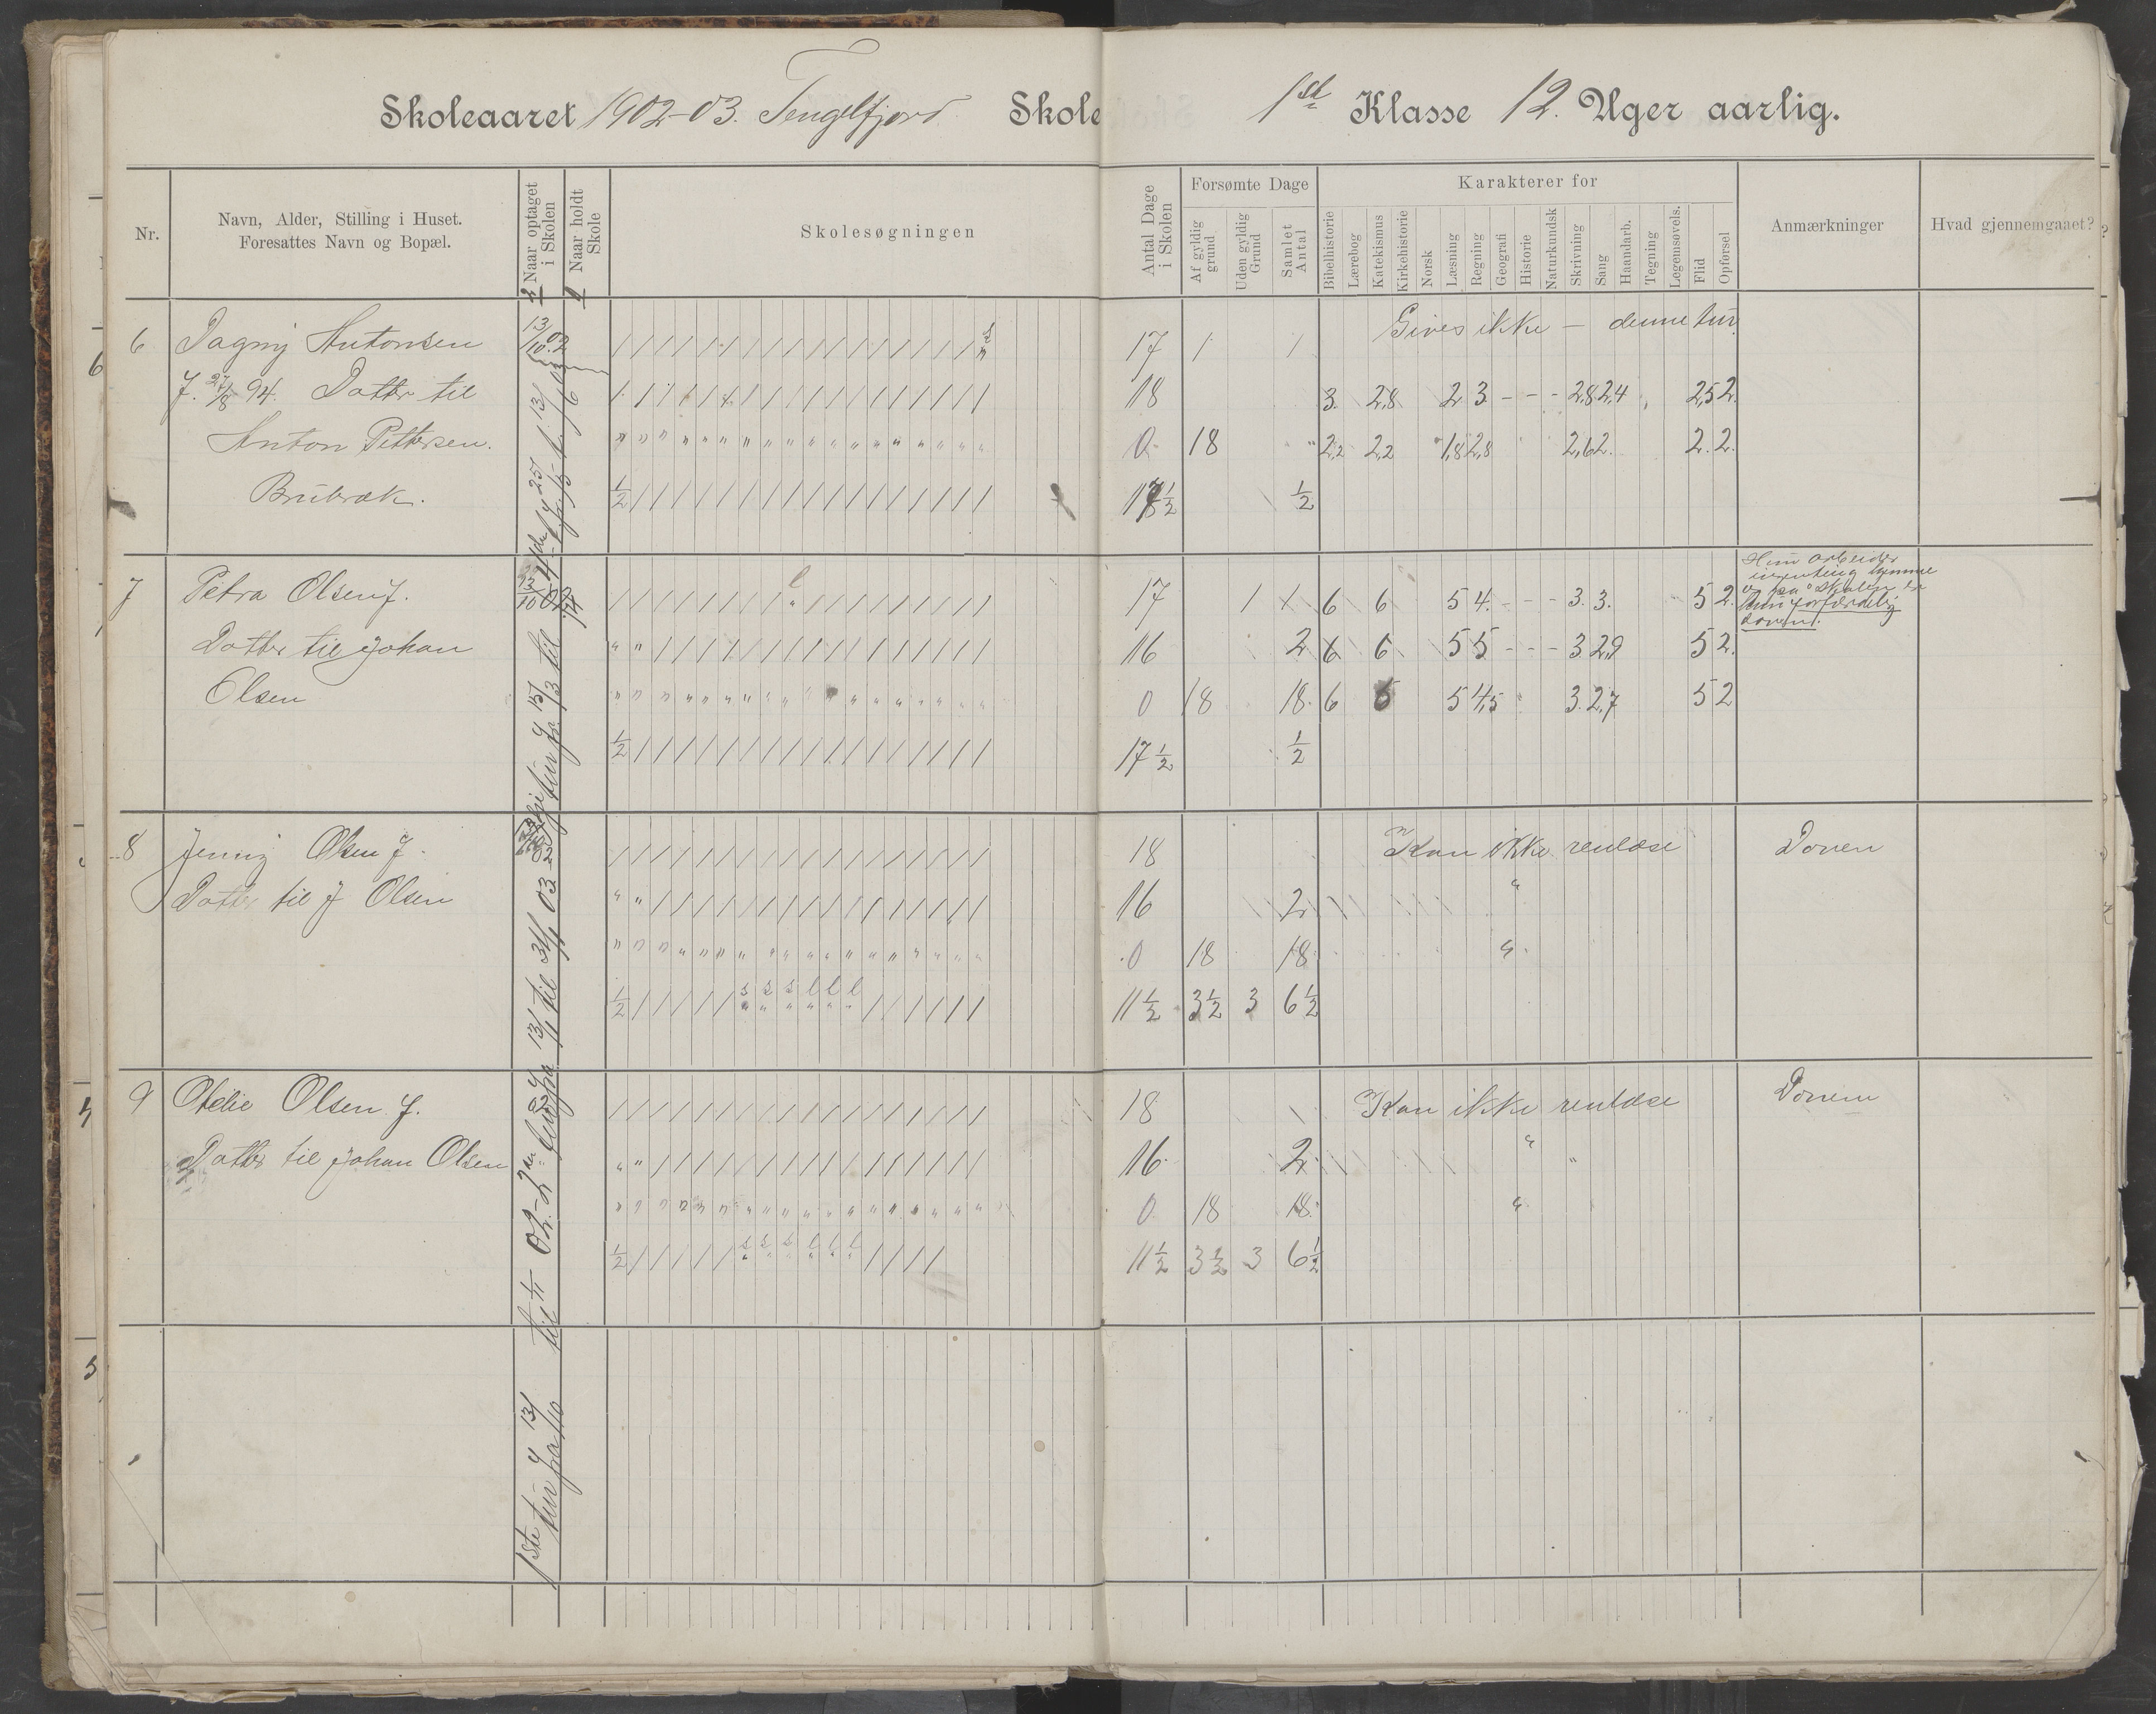 Skoleaaret 1902-03. Tengelfjord Skole 1ste Klasse 12. Uger aarlig.
Nr.
Navn, Alder, Stilling i Huset.
Foresattes Navn og Bopæl.
Naar optaget i Skolen
Naar holdt Skole
Skolesøgningen
Antal Dage i Skolen
Forsømte Dage
Af gyldig grund
Uden gyldig Grund
Samlet Antal
Karakterer for
Bibelhistorie
Lærebog
Katekismus
Kirkehistorie
Norsk
Læsning
Regning
Geografi
Historie
Naturkundsk
Skrivning
Sang
Haandarb.
Tegning
Legemsøvels.
Flid
Opførsel
Anmærkninger
Hvad gjennemgaaet?
6 Dagny Antonsen 13/10 02 17 1 1 Gives ikke — denne tur
f. 27/8 94. Datter til 18 3. 2,8 2 3. - - - 2,8 2,4 2,5 2.
Anton Pettersen. 0 18 " 2,2 2,2 1,8 2,8 2,6 2. 2. 2.
Brubræk. 1/2 17 1/2 1/2
7 Petra Olsen f. 17 1 1 6 6 5 4. - - - 3. 3. 5 2.
Hun arbeider
ingenting hjemme
og på skolen er
hun forfærdelig
doven.
Datter til Johan " " 16 2 6 6 5 5 - - - 3. 2,9 5 2.
Olsen 0 18 18. 6 6 5 4,5 3. 2,7 5 2
1/2 17 1/2 1/2
8 Jenny Olsen f. 18 Kan ikke renlæse Doven
Datter til J Olsen " " 16 2 "
0 18 18 "
1/2 s s s l l l 11 1/2 3 1/2 3 6 1/2
9 Otelie Olsen f. 18 Kan ikke renlæse Doven
Datter til Johan Olsen " " 16. 2. "
0 18 18. "
1/2 s s s l l l 11 1/2 3 1/2 3 6 1/2
1ste tur fra 13/10 til